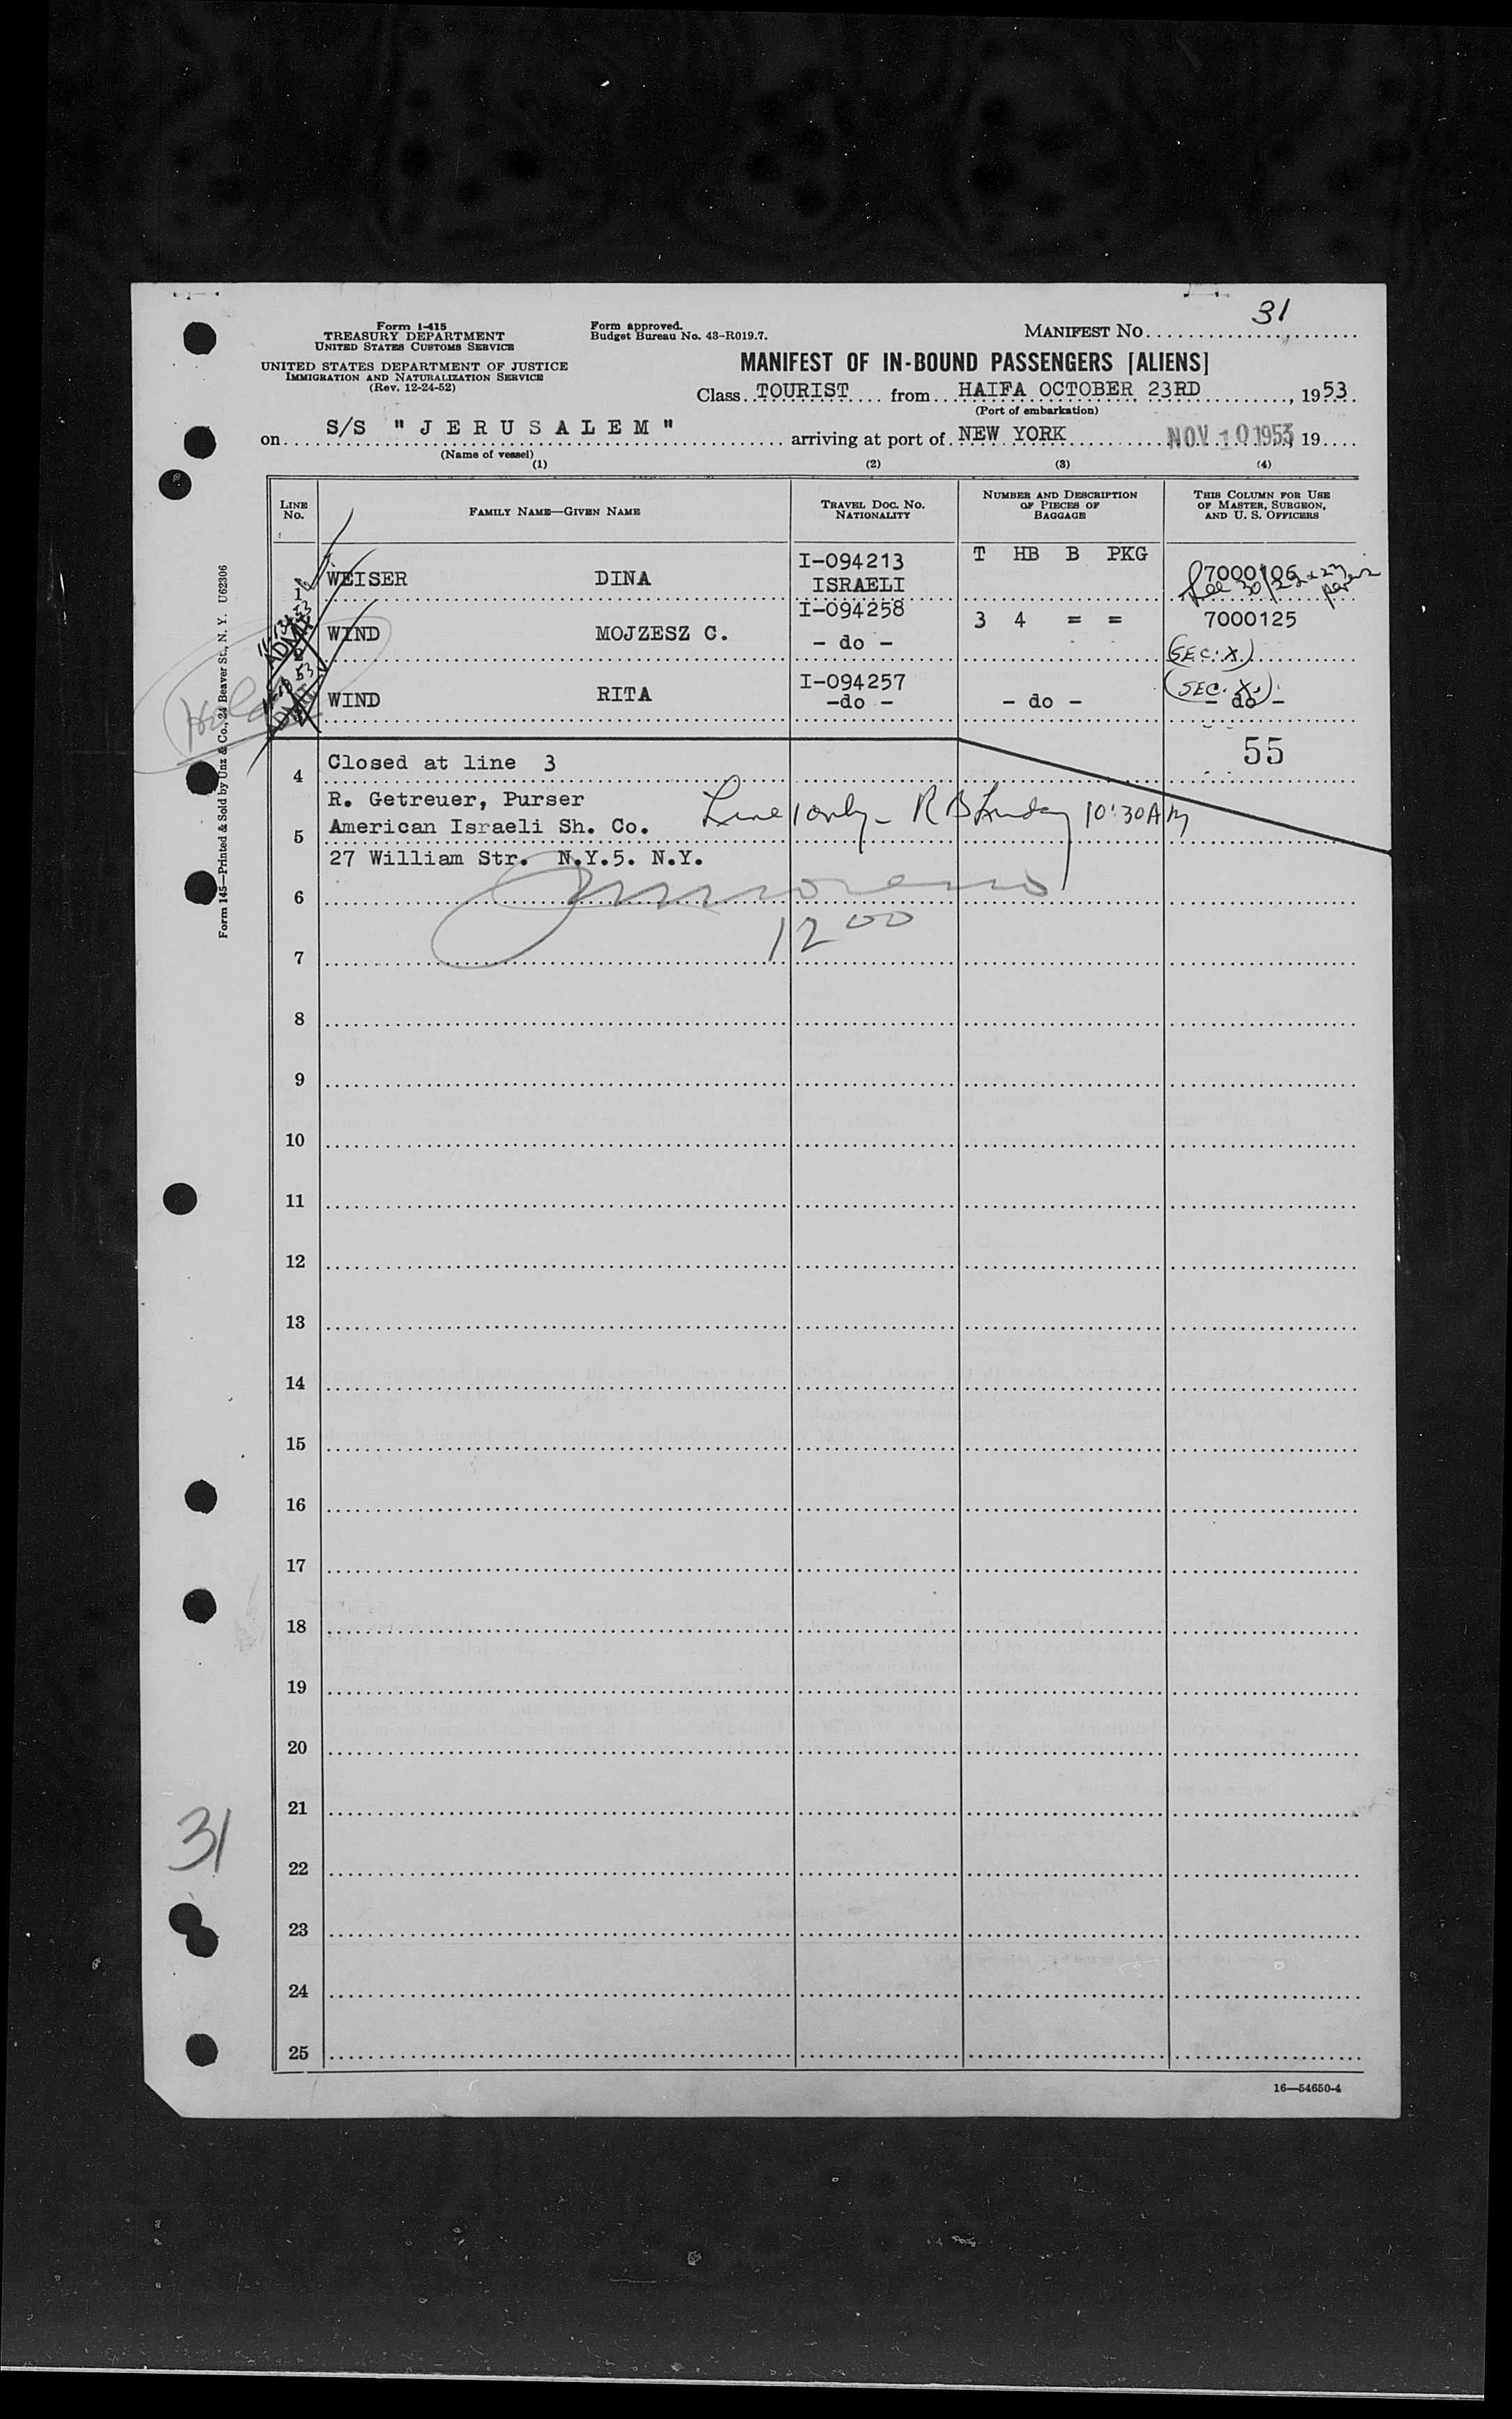 31
Form I-415
TREASURY DEPARTMENT
UNITED STATES CUSTOMS SERVICE
UNITED STATES DEPARTMENT OF JUSTICE
IMMIGRATION AND NATURALIZATION SERVICE
(Rev. 12-24-52)
Form approved.
Budget Bureau No. 43-R019.7.
MANIFEST NO.
MANIFEST OF IN-BOUND PASSENGERS [ALIENS]
Class TOURIST from HAIFA OCTOBER 23RD, 1953
(Port of embarkation)
on S/S "JERUSALEM" arriving at port of NEW YORK NOV 10 1953, 19
(Name of vessel)
(1) (2) (3) (4)
LINE NO. FAMILY NAME—GIVEN NAME TRAVEL DOC. NO. NATIONALITY NUMBER AND DESCRIPTION OF PIECES OF BAGGAGE THIS COLUMN FOR USE OF MASTER, SURGEON, AND U. S. OFFICERS
T HB B PKG
1 WEISER DINA I-094213 ISRAELI 7000106
See 30/22 & 23
2 WIND MOJZESZ C. I-094258 - do - 3 4 = = 7000125
(SEC. X.)
WIND RITA I-094257 -do - - do - (SEC. X.) - do -
ADMIT
ADMIT
55
4 Closed at line 3
R. Getreuer, Purser
5 American Israeli Sh. Co.
Line 1 only - R B 10:30 AM
27 William Str. N.Y.5. N.Y.
6
12 00
7
8
9
10
11
12
13
14
15
16
17
18
19
20
21
22
23
24
25
16—54650-4
Form 145—Printed & Sold by Unz & Co., 24 Beaver St., N. Y. U62306
31